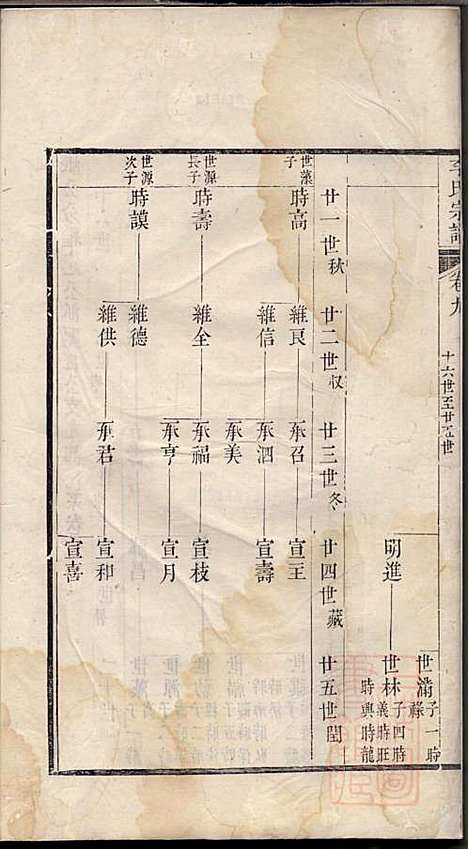 李氏宗譜
卷九
十六世至廿五世
世滿 子一 時
世林 子四 時義 時旺 時興 時龍
明進
廿一世秋
廿二世収
廿三世冬
廿四世藏
廿五世閏
世藻子
時高
維良
承召
宣王
維信
承泗
宣壽
承美
世源長子
時壽
維全
承福
宣枝
承亨
宣月
世源次子
時謨
維德
維供
承君
宣和
宣喜